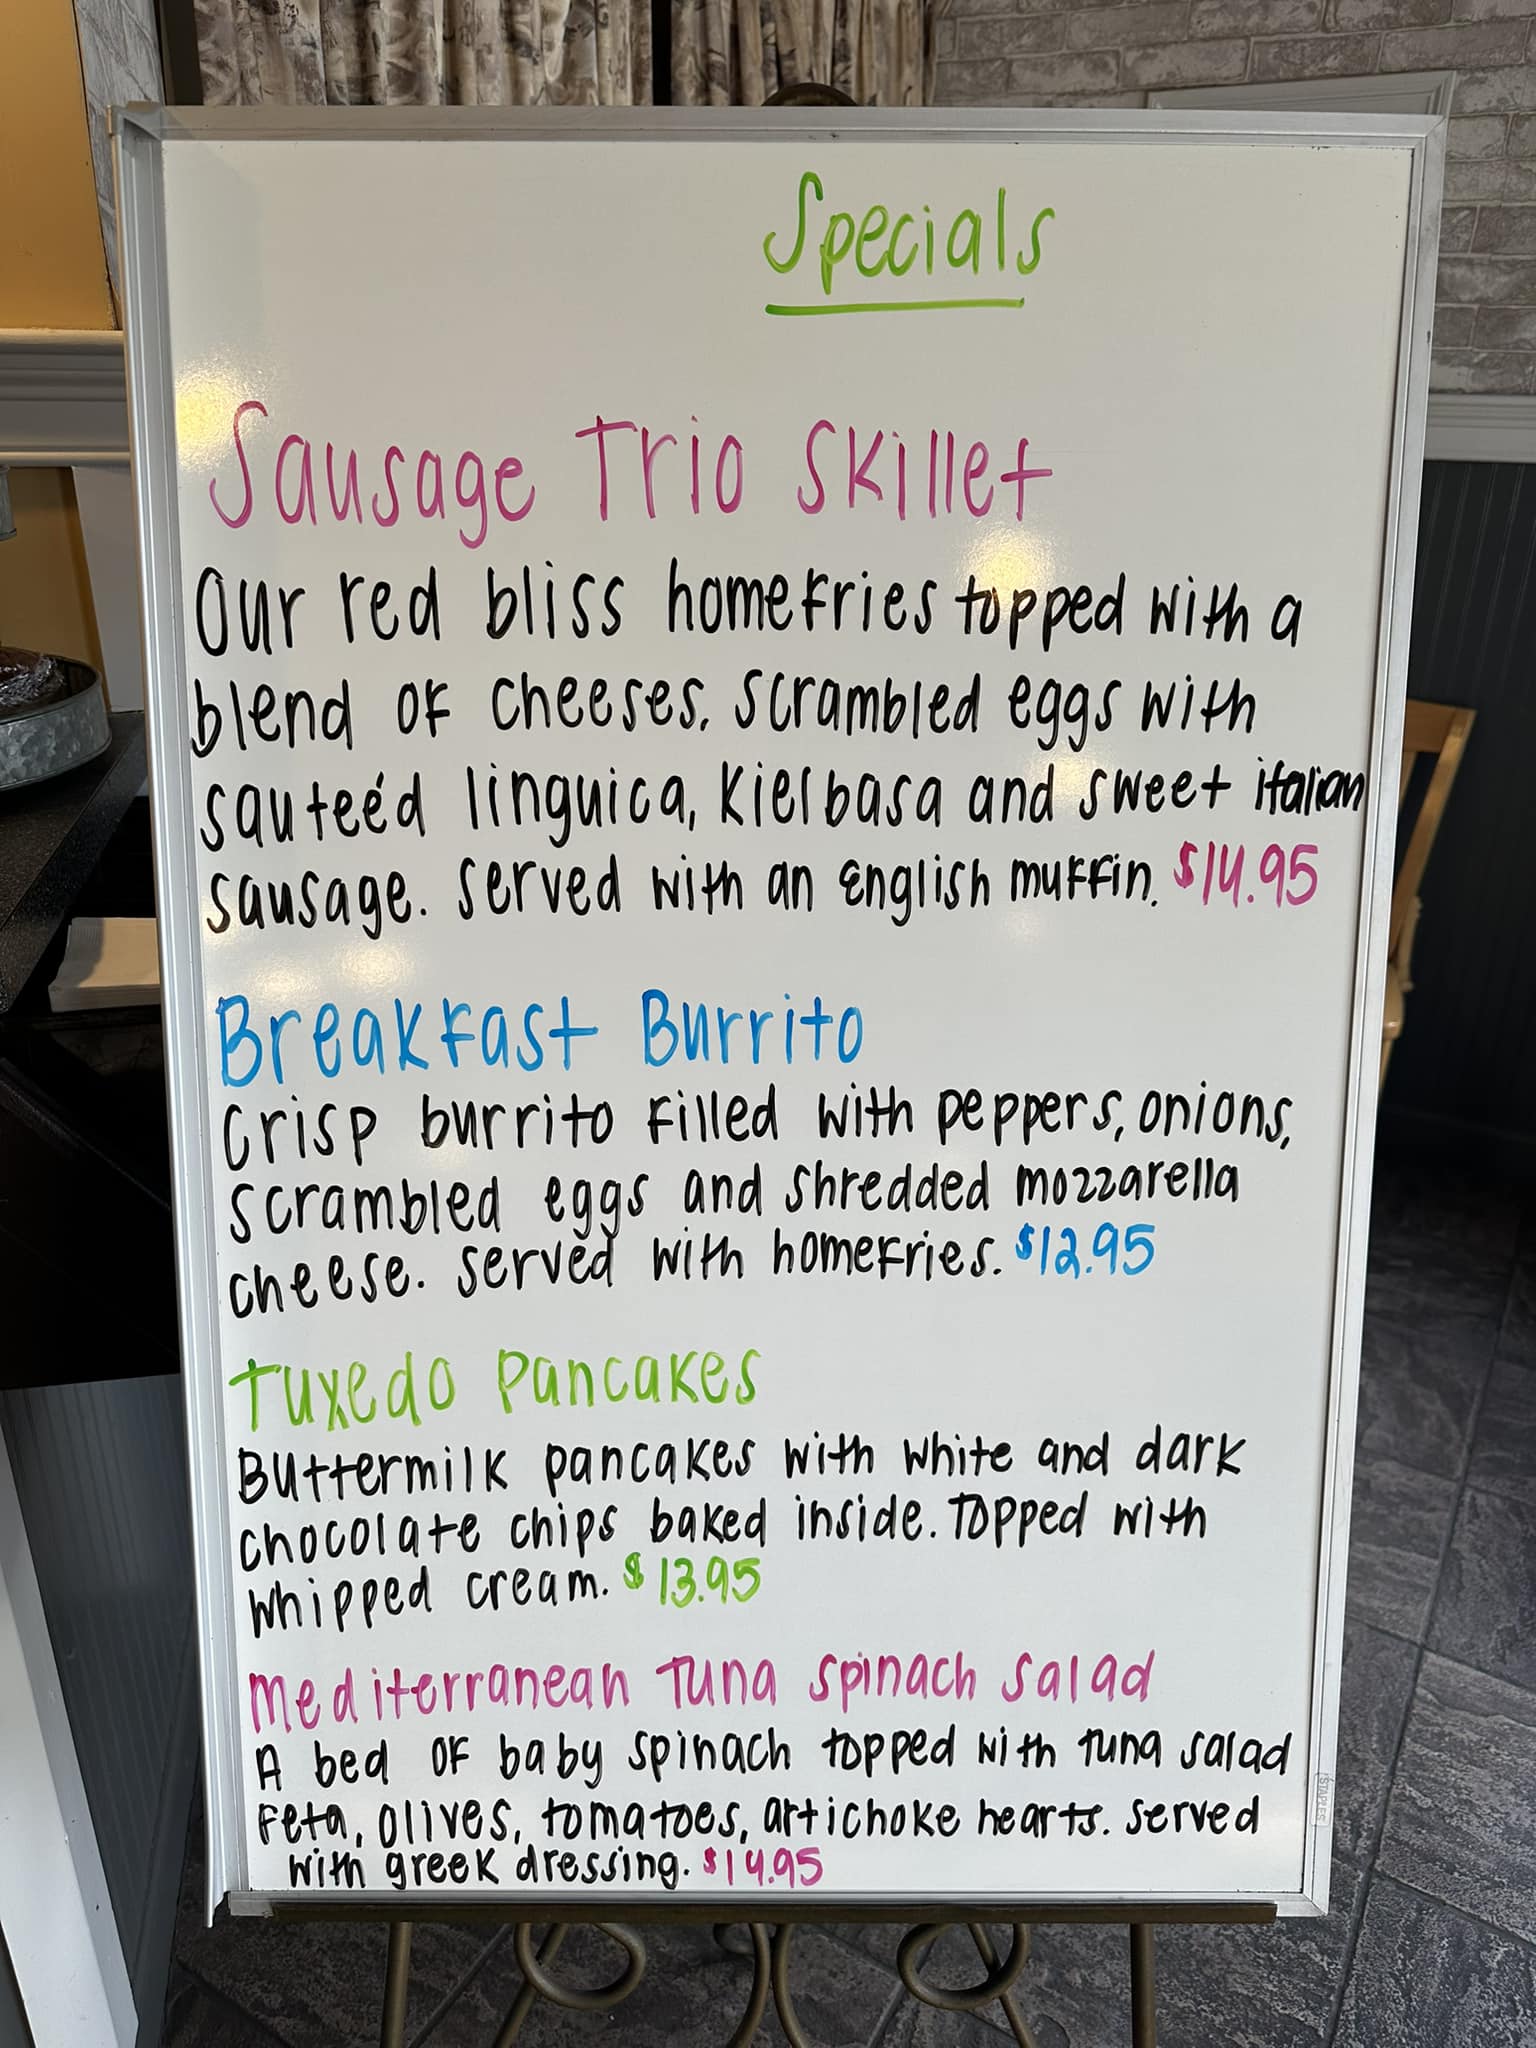 Specials
Sausage Trio Skillet
Our red bliss homefries topped with a
blend of cheeses. Scrambled eggs with
sauteéd linguica, Kielbasa and sweet italian
sausage. Served with an English muffin. $14.95
Breakfast Burrito
Crisp burrito filled with peppers, onions,
scrambled eggs and shredded mozzarella
cheese. Served with homefries. $12.95
Tuxedo Pancakes
Buttermilk pancakes with white and dark
chocolate chips baked inside. Topped with
whipped cream. $13.95
Mediterranean Tuna Spinach Salad
A bed of baby spinach topped with tuna salad
feta, olives, tomatoes, artichoke hearts. Served
with greek dressing. $14.95
STAPLES